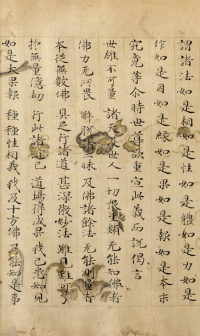 謂諸法如是相如是性如是體如是力如是
作如是因如是緣如是果如是報如是本末
究竟等尒時世尊欲重宣此義而說偈言
世雄不可量 諸天及世人 一切衆生類 无能知佛者
佛力无所畏 解脫諸三昧 及佛諸餘法 无能測量者
本從无數佛 具足行諸道 甚深微妙法 難見難可了
於無量億劫 行此諸道已 道場得成果 我已悉知見
如是大果報 種種性相義 我及十方佛 乃能知是事